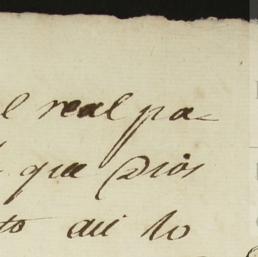 l real pa-
que Dios
to asi lo